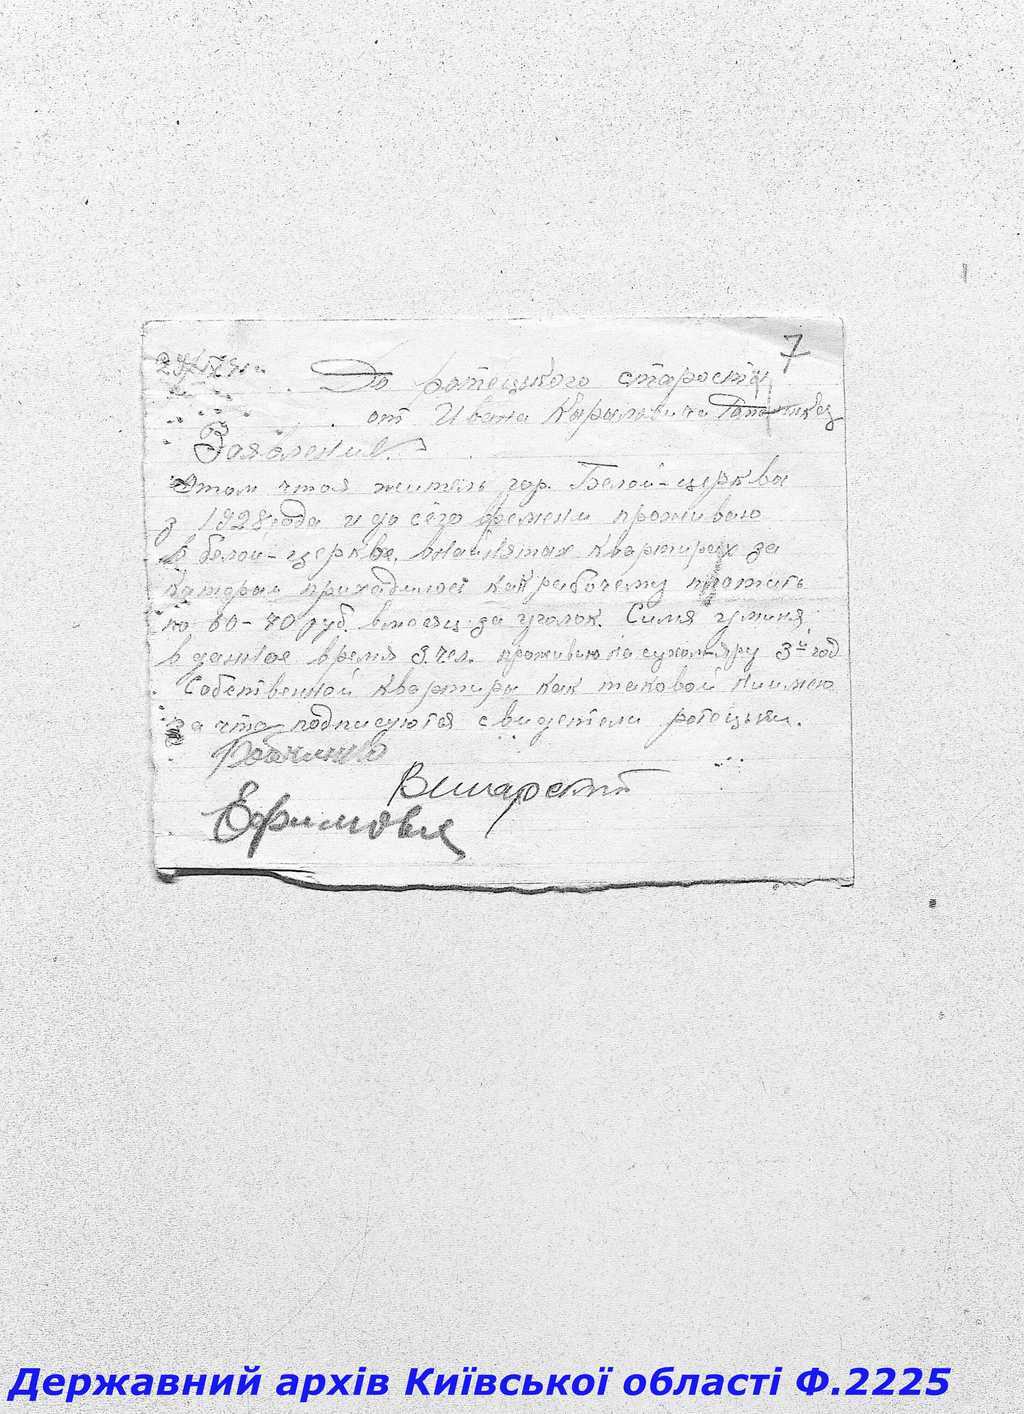 7
До ротецького старости
от Ивана Карыловича
Заявление.
Отом что я житель гор. Белой-церкви
з 1928 года и до сего времени проживаю
в белой-церкве. внайматах квартирах за
каторыи приходилось как рабочему платить
по 60-70 руб. вмесяц за уголок. Симя уминя
в данное время 3. чел. проживаю на сухом-яру 3й год
Собственной квартиры как таковой ниимею
за что подписуются свидетели ротецьки.
Вишарский
Ефимовы
Державний архів Київської області Ф.2225